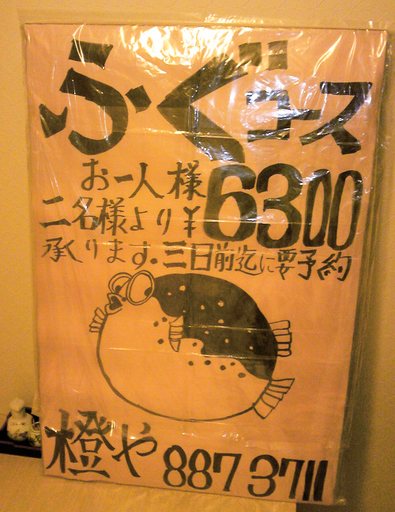 ふぐコース
お一人様 6300
二名様より ¥
承ります。三日前迄に要予約
橙や 887 3711